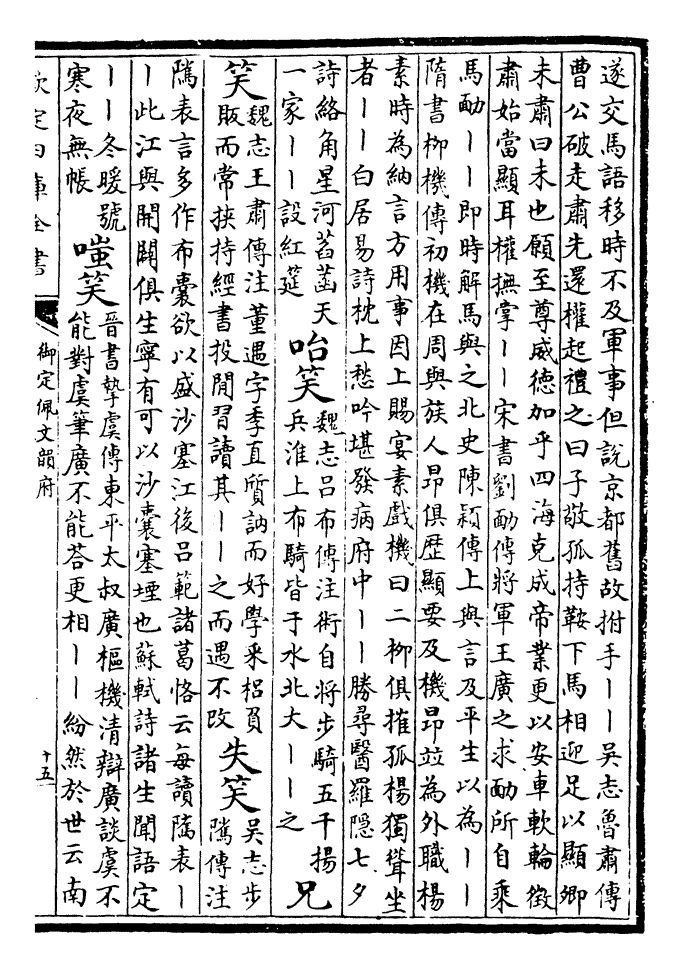 遂交馬語移時不及軍事但說京都舊故拊手丨丨吳志魯肅傳
曹公破走肅先還權起禮之曰子敬孤持鞍下馬相迎足以顯卿
未肅曰未也願至尊威德加乎四海克成帝業更以安車軟輪徵
肅始當顯耳權撫掌丨丨宋書劉勔傳將軍王廣之求勔所自乘
馬勔丨丨即時解馬與之北史陳穎傳上與言及平生以為丨丨
隋書柳機傳初機在周與族人昻俱歴顯要及機昻竝為外職楊
素時為納言方用事因上賜宴素戲機曰二柳俱摧孤楊獨聳坐
者丨丨白居易詩枕上愁吟堪發病府中丨丨勝尋醫羅隱七夕
詩絡角星河萏菡天
一家丨丨設紅筵
咍笑
魏志呂布傳注術自將步騎五千揚
兵淮上布騎皆于水北大丨丨之
兄
笑
魏志王肅傳注董遇字季直質訥而好學采梠負
販而常挾持經書投閒習讀其丨丨之而遇不改
失笑
吳志步
騭傳注
騭表言多作布囊欲以盛沙塞江後呂範諸葛恪云每讀騭表丨
丨此江與開闢俱生寧有可以沙囊塞堙也蘇軾詩諸生聞語定
丨丨冬暖號
寒夜無帳
嗤笑
晉書摯虞傳東平太叔廣樞機清辯廣談虞不
能對虞筆廣不能荅更相丨丨紛然於世云南
欽定四庫全書
御定佩文韻府
十五